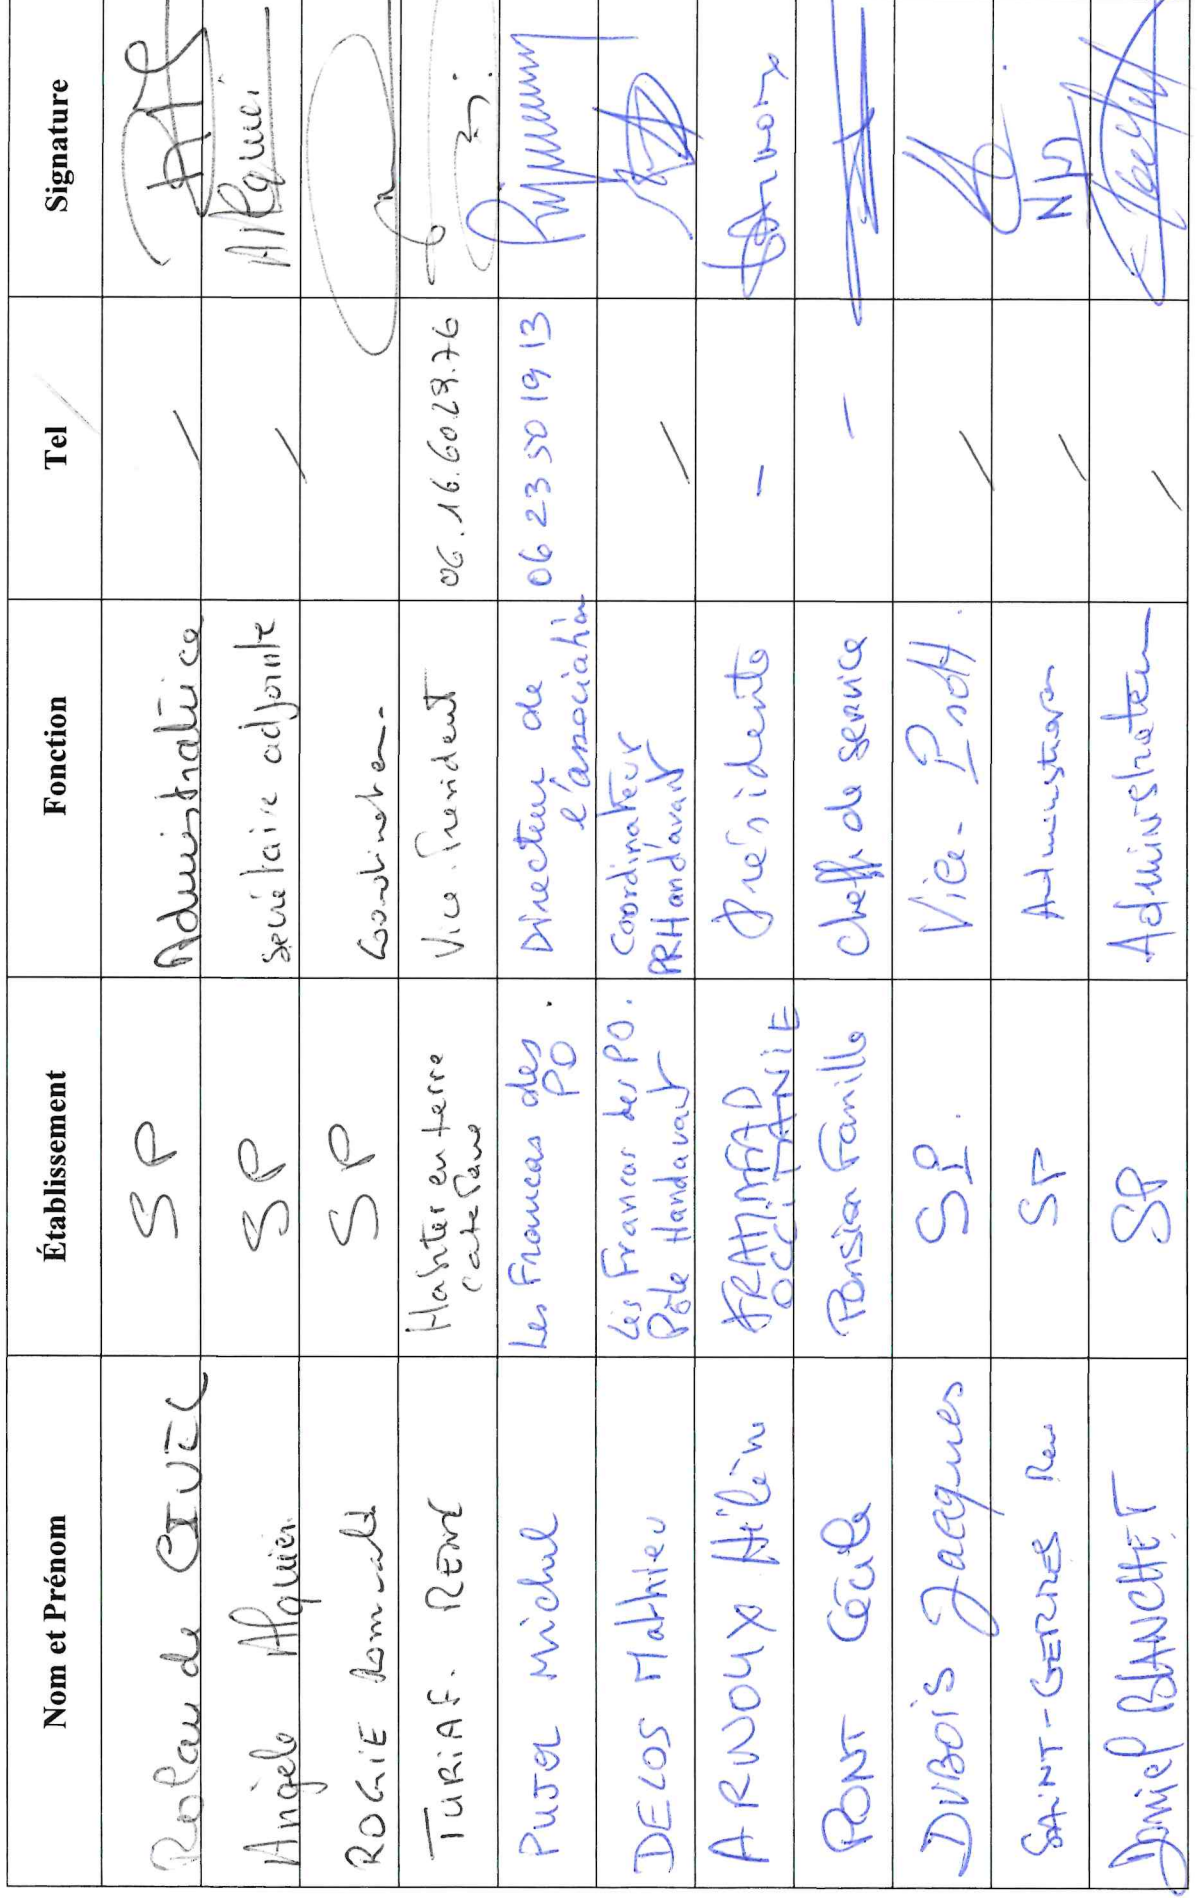 Nom et Prénom Établissement Fonction Tel Signature
Rolande SP Administratrice /
Angèle Alquier SP secrétaire adjointe / Alquier
ROGIE Romuald SP
TURIAF. RENÉ Habiter en terre catalane Vice-President 06.16.60.29.76
PUJOL Michel Les Francas des PO. Directeur de l'association 06 23 50 19 13
DELOS Mathieu Les Francas des PO. Pôle Handavant Coordinateur PRHandavant /
ARNOUX Hélène OCCITANIE Présidente - Arnoux
PONT Cécile Pension Famille Cheffe de service -
DUBOIS Jacques SP. Vice- /
SAINT-GERMES SP /
Daniel BLANCHET SP Administrateur /